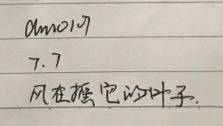 7.7
风在摇它的叶子.